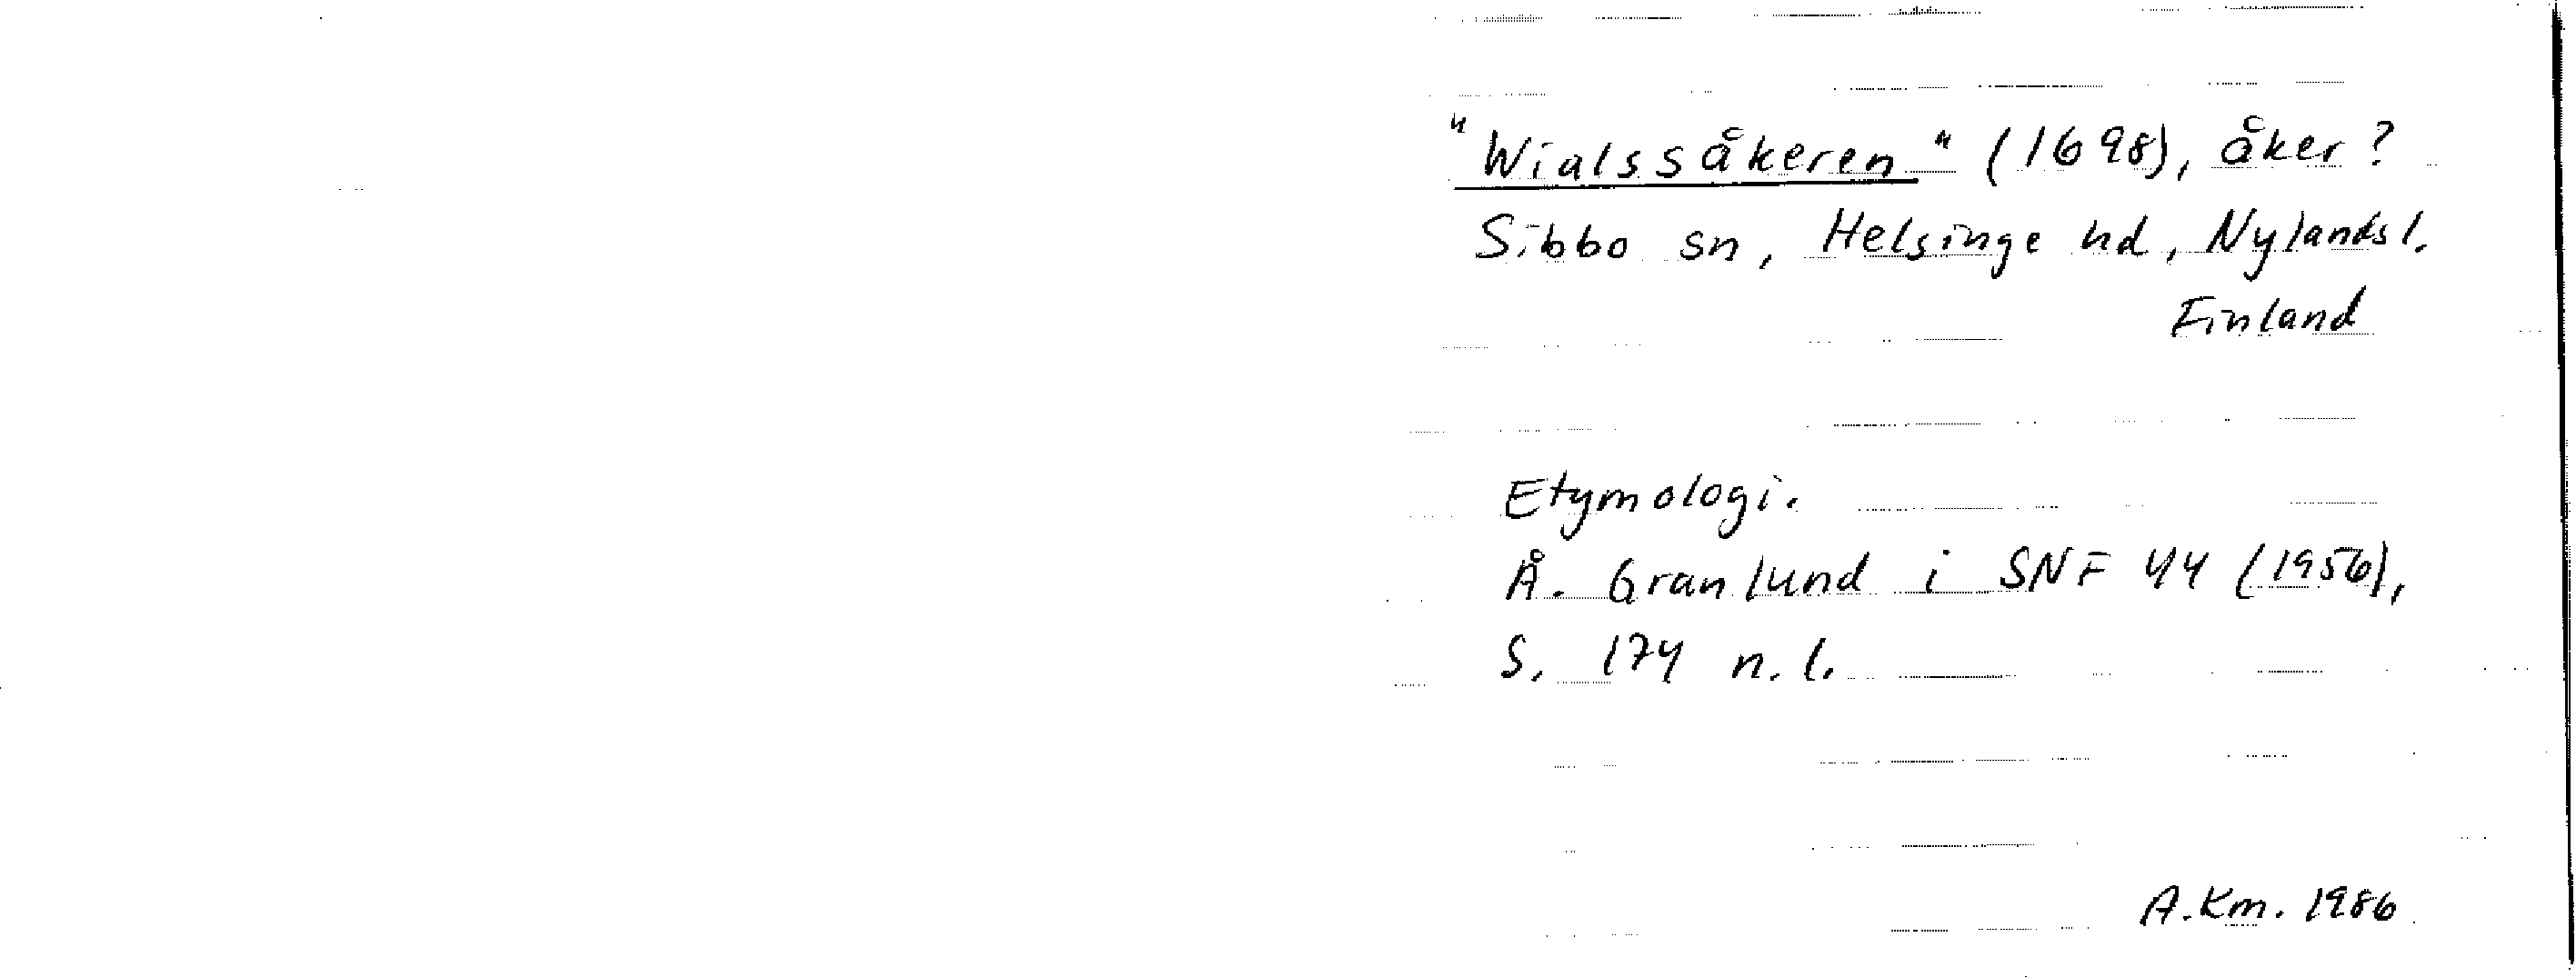 "Wialssåkeren" (1698), åker?
Sibbo sn, Helsinge hd, Nylands l.
Finland
Etymologi.
Å. Granlund i SNF 44 (1956),
S. 174 n. l.
A.Km. 1986